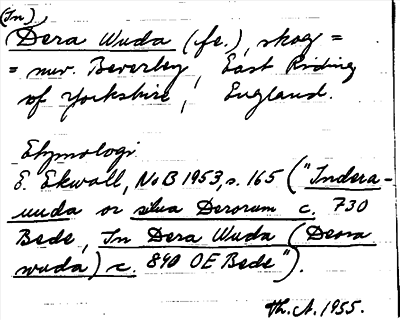 (In)
Dera Wuda (fe.), skog =
= nuv. Beverley, East Riding
of Yorkshire, England.
Etymologi
E. Ekwall, NoB 1953, s. 165 ("Indera-
uuda or silua Derorum c. 730
Bede, In Dera Wuda (Deora
wuda) c. 890 OE Bede").
Th. A. 1955.